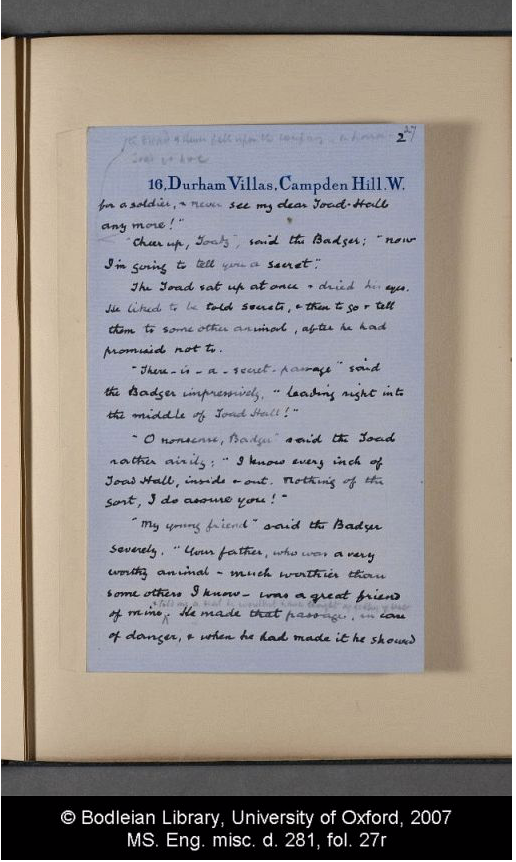 27
2
16, Durham Villas, Campden Hill. W.
for a soldier, & never see my dear Toad-Hall
any more!"
"Cheer up, Toady", said the Badger; "now
I'm going to tell you a secret."
The Toad sat up at once & dried his eyes.
He liked to be told secrets, & then to go & tell
them to some other animal, after he had
promised not to.
"There-is-a-secret-passage" said
the Badger impressively, "leading right into
the middle of Toad Hall!"
"O nonsense, Badger" said the Toad
rather airily; "I know every inch of
Toad Hall, inside & out. Nothing of the
sort, I do assure you!"
"My young friend" said the Badger
severely. "Your father, who was a very
worthy animal - much worthier than
some others I know - was a great friend
& told me a
of mine. He made that passage, in case
of danger, & when he had made it he showed
© Bodleian Library, University of Oxford, 2007
MS. Eng. misc. d. 281, fol. 27r